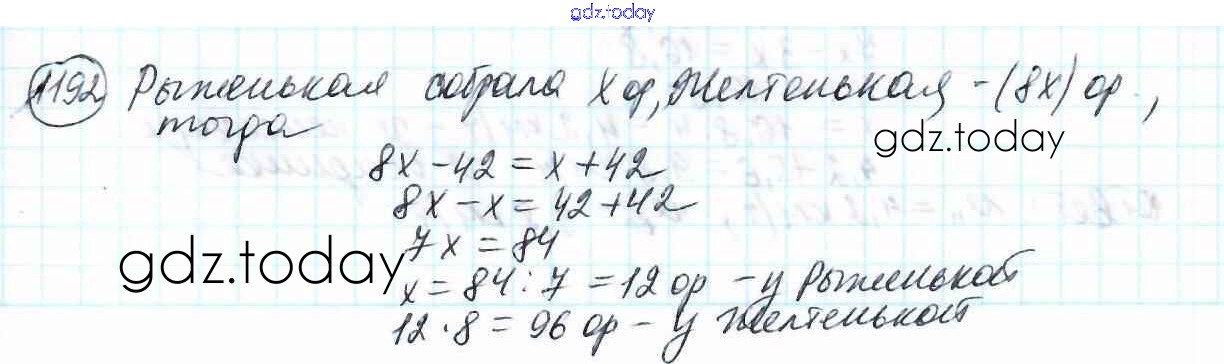 gdz.today
1192 Рыженькая собрала х ор, Желтенькая - (8х) ор.,
тогда
gdz.today
8х - 42 = х + 42
8х - х = 42 + 42
7х = 84
gdz.today
х = 84 : 7 = 12 ор - у Рыженькой
12 · 8 = 96 ор - у Желтенькой